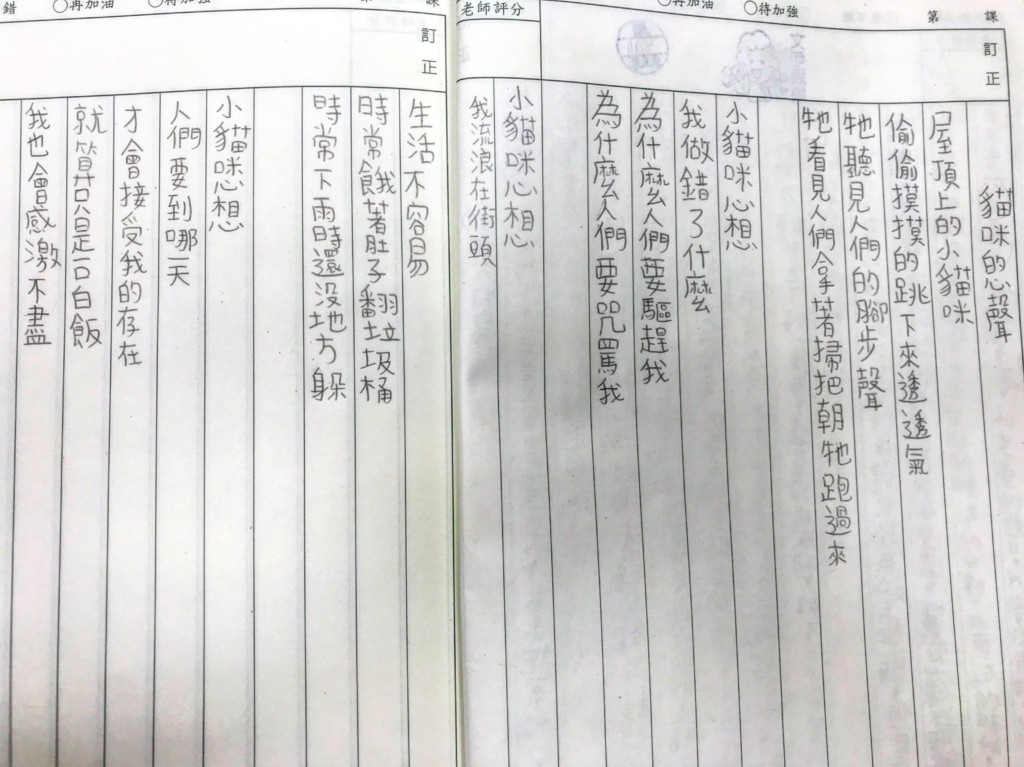 第 課
○再加油 ○待加強
老師評分
訂正
貓咪的心聲
屋頂上的小貓咪
偷偷摸摸的跳下來透透氣
牠聽見人們的腳步聲
牠看見人們拿著掃把朝牠跑過來
小貓咪心想
我做錯了什麼
為什麼人們要驅趕我
為什麼人們要咒罵我
小貓咪心想
我流浪在街頭
課
○再加油 ○待加強
錯
訂正
生活不容易
時常餓著肚子翻垃圾桶
時常下雨時還沒地方躲
小貓咪心想
人們要到哪一天
才會接受我的存在
就算只是一口白飯
我也會感激不盡